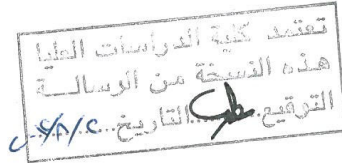 تعتمد كلية الدراسات العليا
هذه النسخة من الرسالــة
التوقيع.......التاريخ......